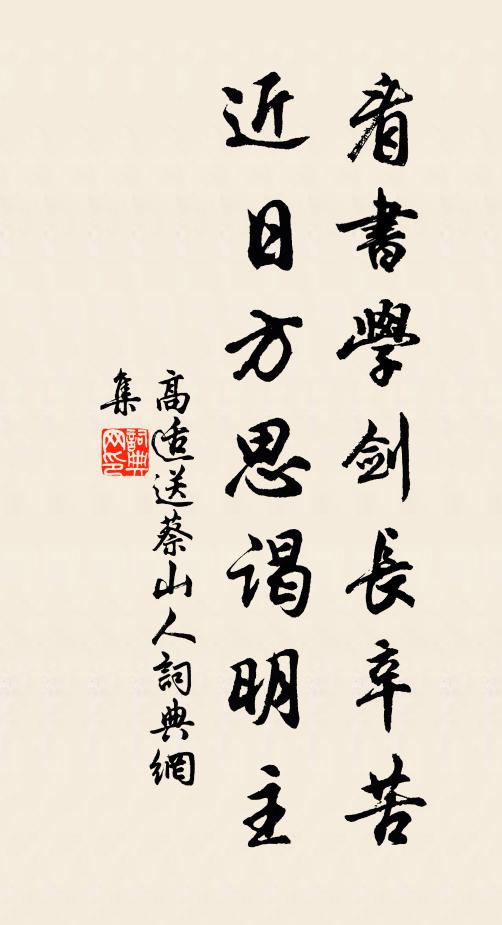 看書學劍長辛苦
近日方思謁明主
高适送蔡山人詞典網
集
詞典
网印